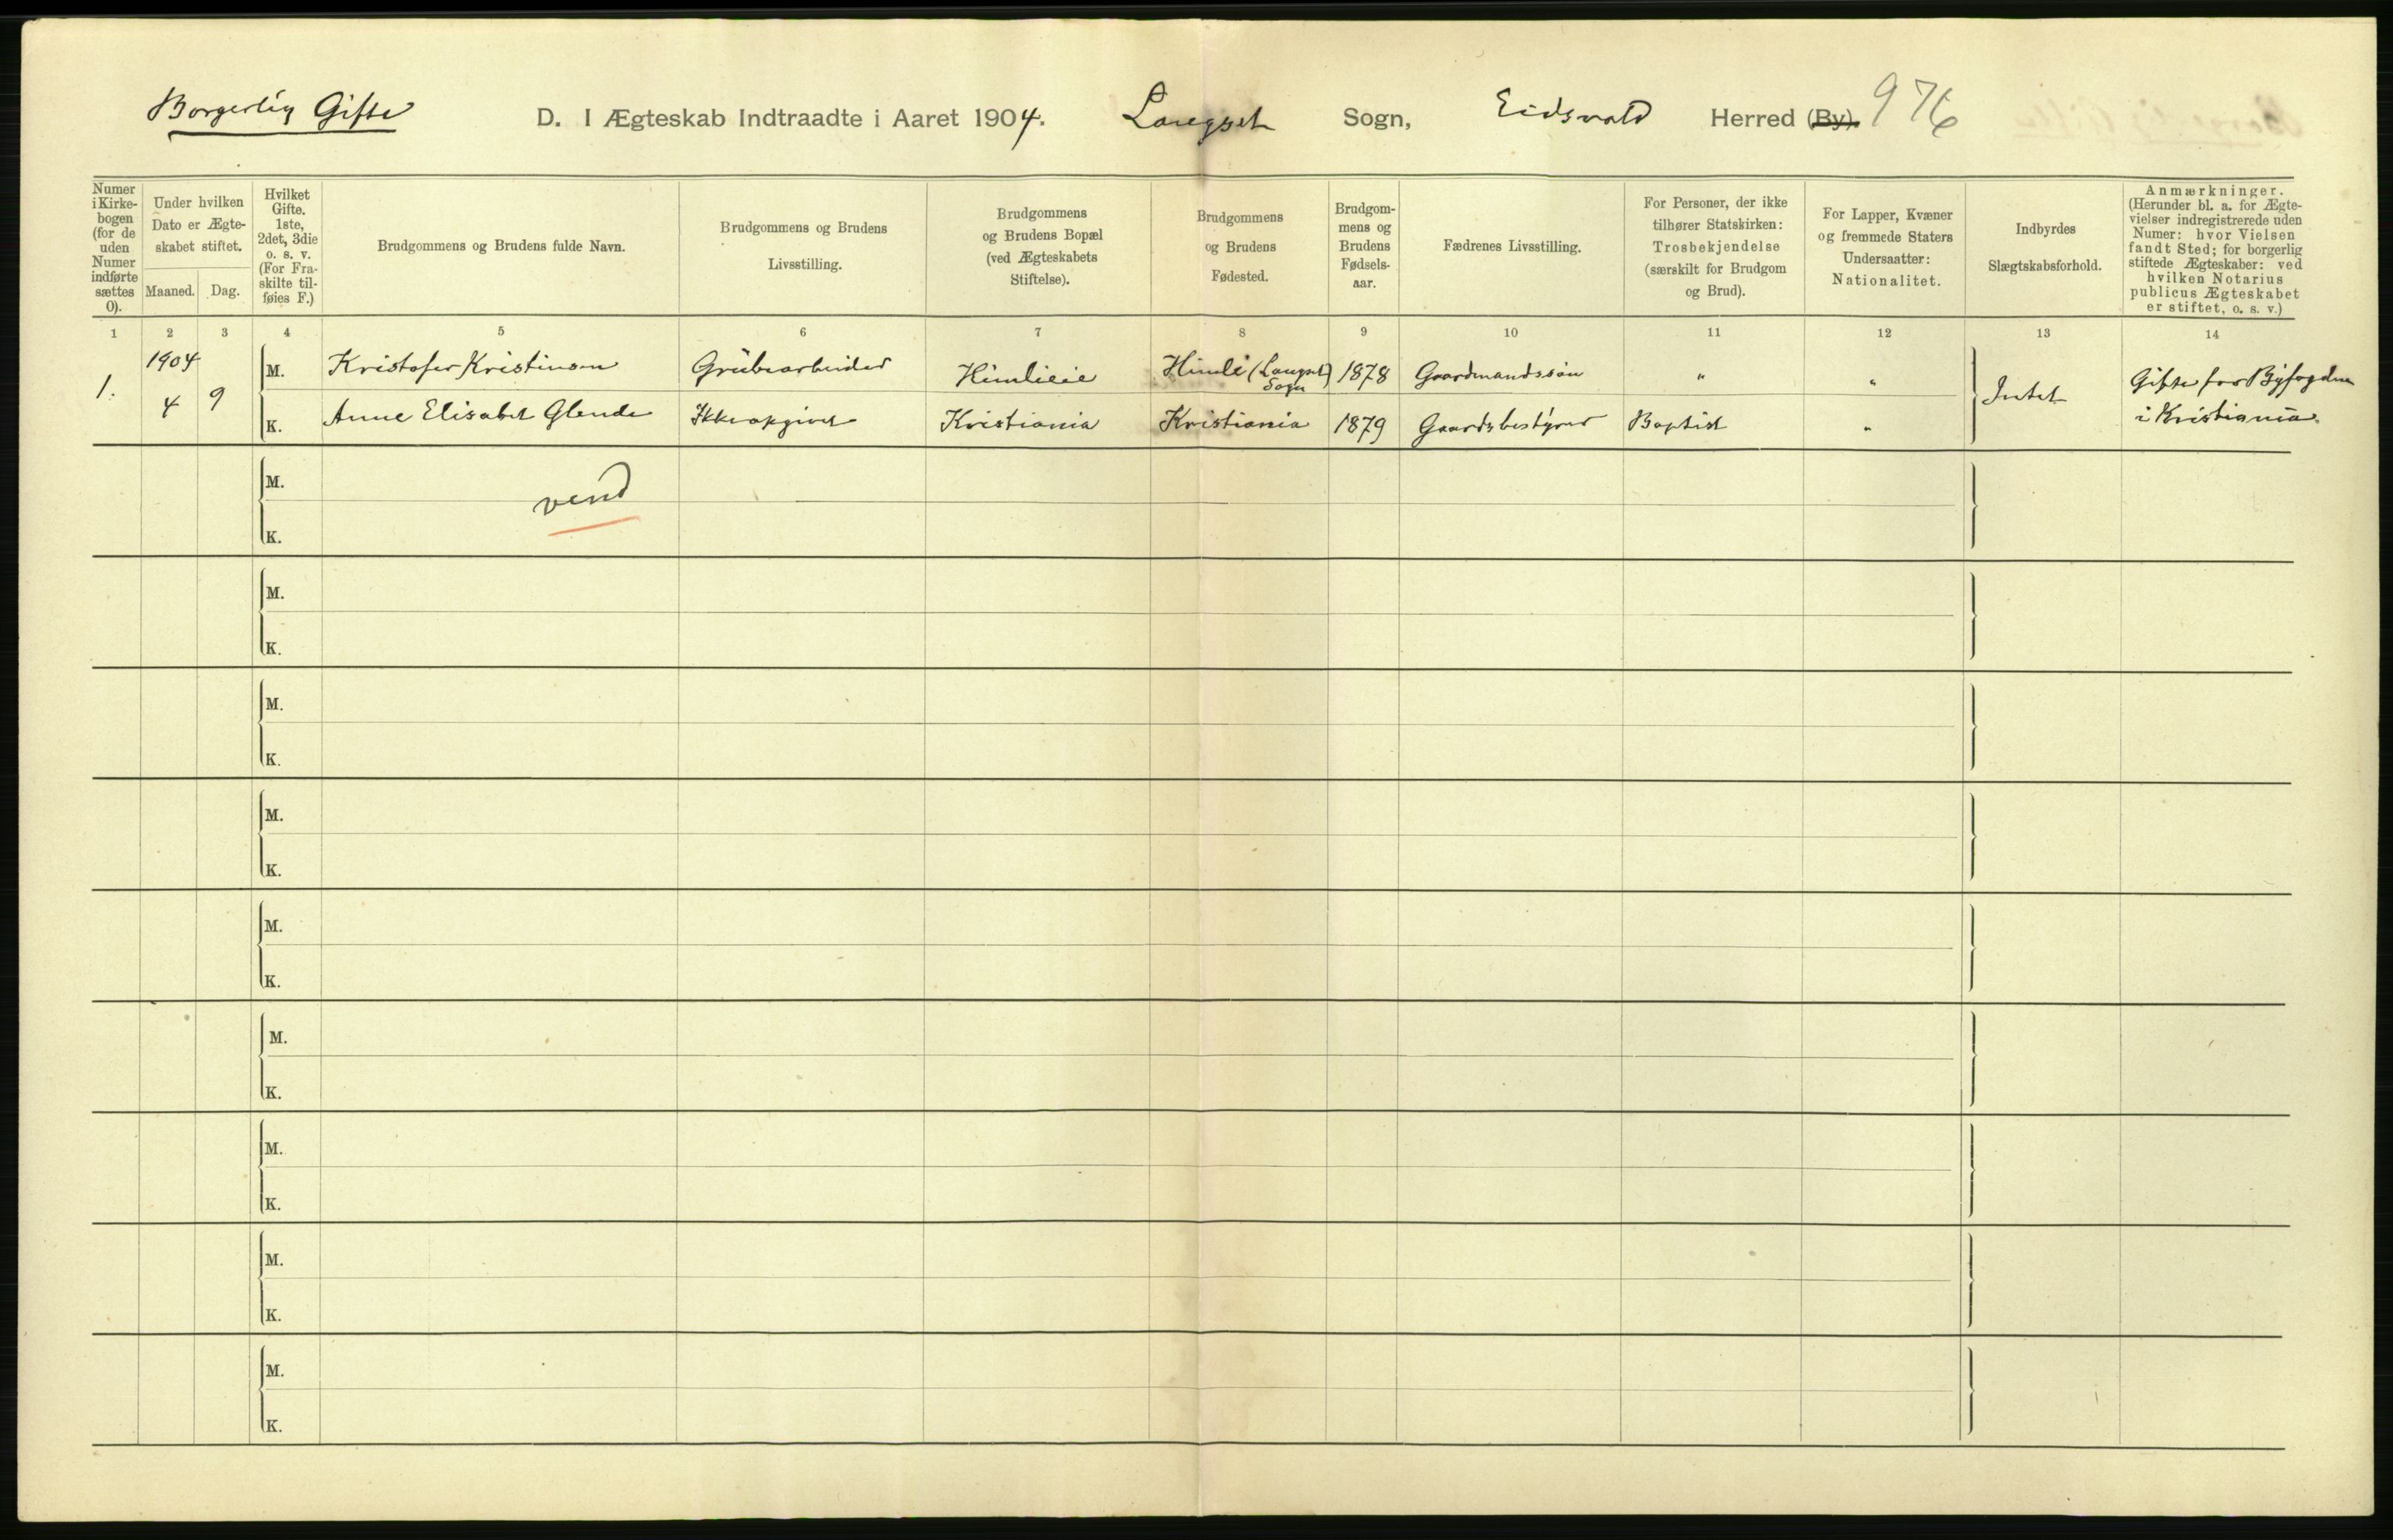 Borgerlig Gifte D. I Ægteskab Indtraadte i Aaret 1904. Langset Sogn, Eidsvold Herred (By). 976
Numer
i Kirke-
bogen
(for de
uden
Numer
indførte
sættes
0).
Under hvilken
Dato er Ægte-
skabet stiftet.
Maaned. Dag.
Hvilket
Gifte.
1ste,
2det, 3die
o. s. v.
(For Fra-
skilte til-
føies F.)
Brudgommens og Brudens fulde Navn.
Brudgommens og Brudens
Livsstilling.
Brudgommens
og Brudens Bopæl
(ved Ægteskabets
Stiftelse).
Brudgommens
og Brudens
Fødested.
Brudgom-
mens og
Brudens
Fødsels-
aar.
Fædrenes Livsstilling.
For Personer, der ikke
tilhører Statskirken:
Trosbekjendelse
(særskilt for Brudgom
og Brud).
For Lapper, Kvæner
og fremmede Staters
Undersaatter:
Nationalitet.
Indbyrdes
Slægtskabsforhold.
Anmærkninger.
(Herunder bl. a. for Ægte-
vielser indregistrerede uden
Numer: hvor Vielsen
fandt Sted; for borgerlig
stiftede Ægteskaber: ved
hvilken Notarius
publicus Ægteskabet
er stiftet, o. s. v.)
1 2 3 4 5 6 7 8 9 10 11 12 13 14
1. 1904
4 9
M. Kristofer Kristinsen Grubearbeider Himlieie Himle (Langset Sogn) 1878 Gaardmandssøn " "
K. Anne Elisabet Glende Ikke opgivet Kristiania Kristiania 1879 Gaardsbestyrer Baptist "
Intet
Gifte for Byfogden
i Kristiania.
M.
vend
K.
M.
K.
M.
K.
M.
K.
M.
K.
M.
K.
M.
K.
M.
K.
M.
K.